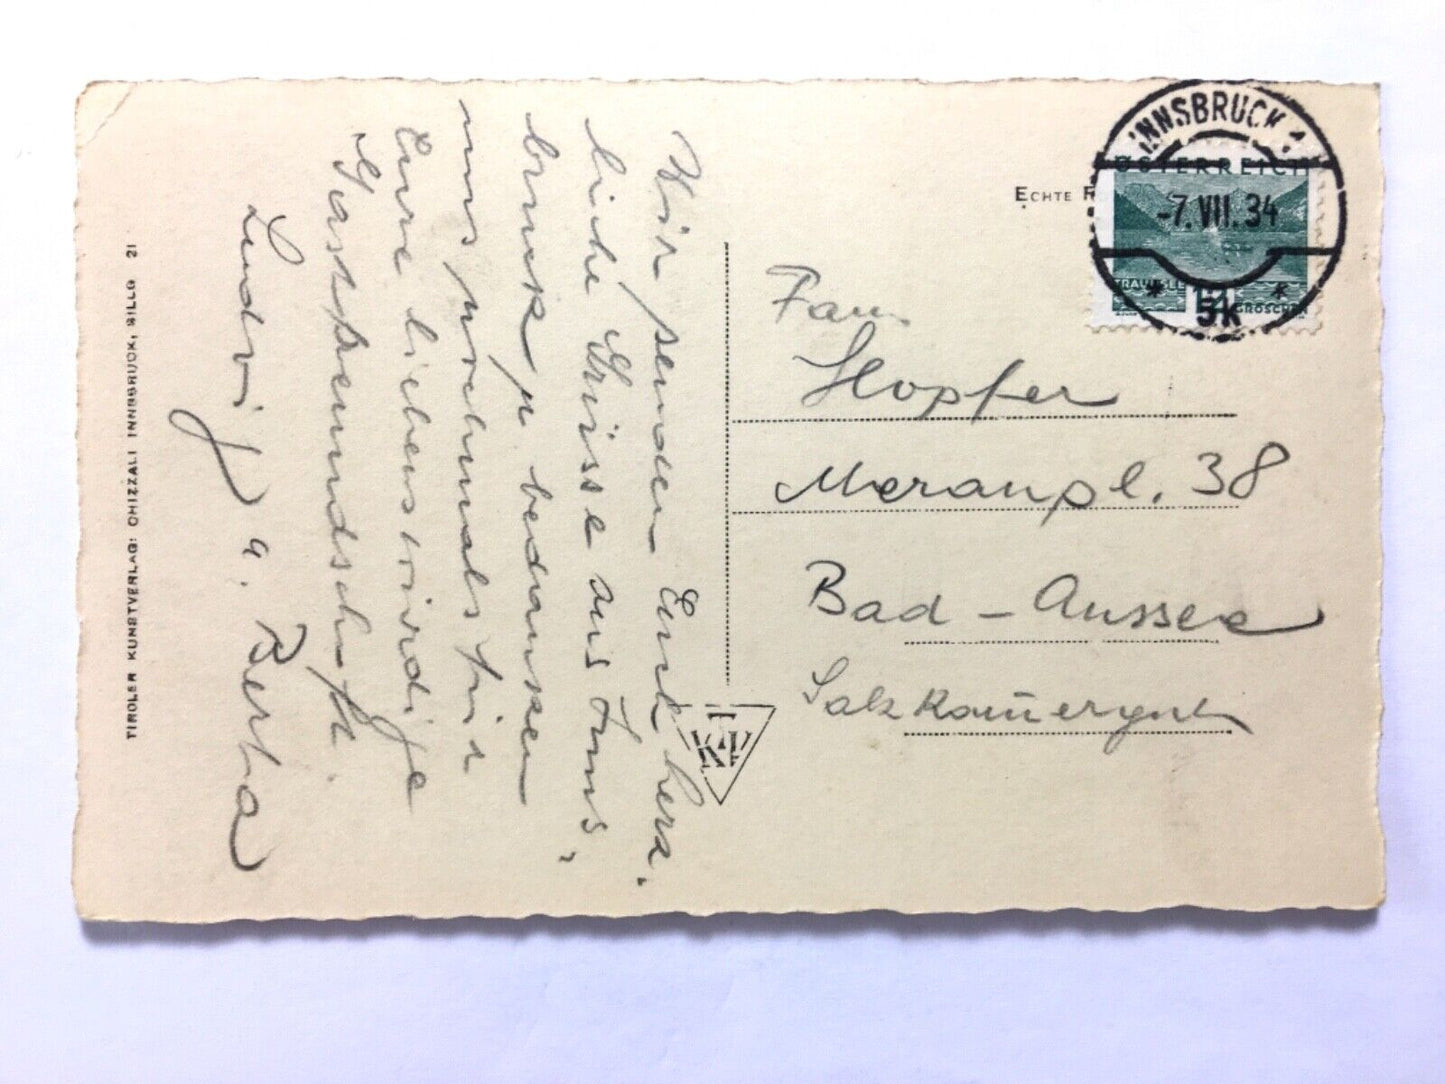 Wir senden Euch herz.
liche Grüsse aus Inns,
bruck u bedanken
uns nochmals für
Eure liebenswürdige
Gastfreundschaft.
Ludwig u. Berta
Fam.
Hopfer
Meranpl. 38
Bad-Aussee
Salzkam̄ergut
ECHTE
INNSBRUCK 1
-7.VII.34
5k
ÖSTERREICH
TRAUNSEE
GROSCHEN
TIROLER KUNSTVERLAG: CHIZZALI INNSBRUCK, SILLG 21